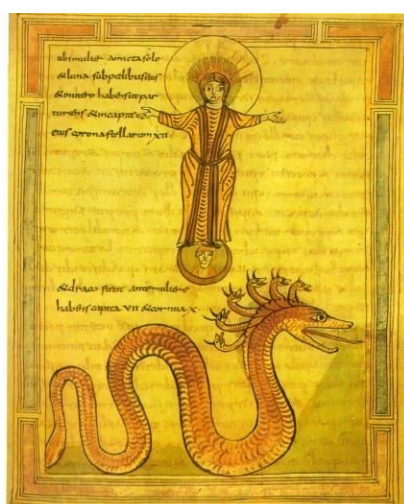 ubi mulier amicta sole
& luna sub pedibus eius
& in utero habens & par
turiens & in capite
eius corona stellarum xii
& draco stetit ante mulierē
habens capita vii & cornua x